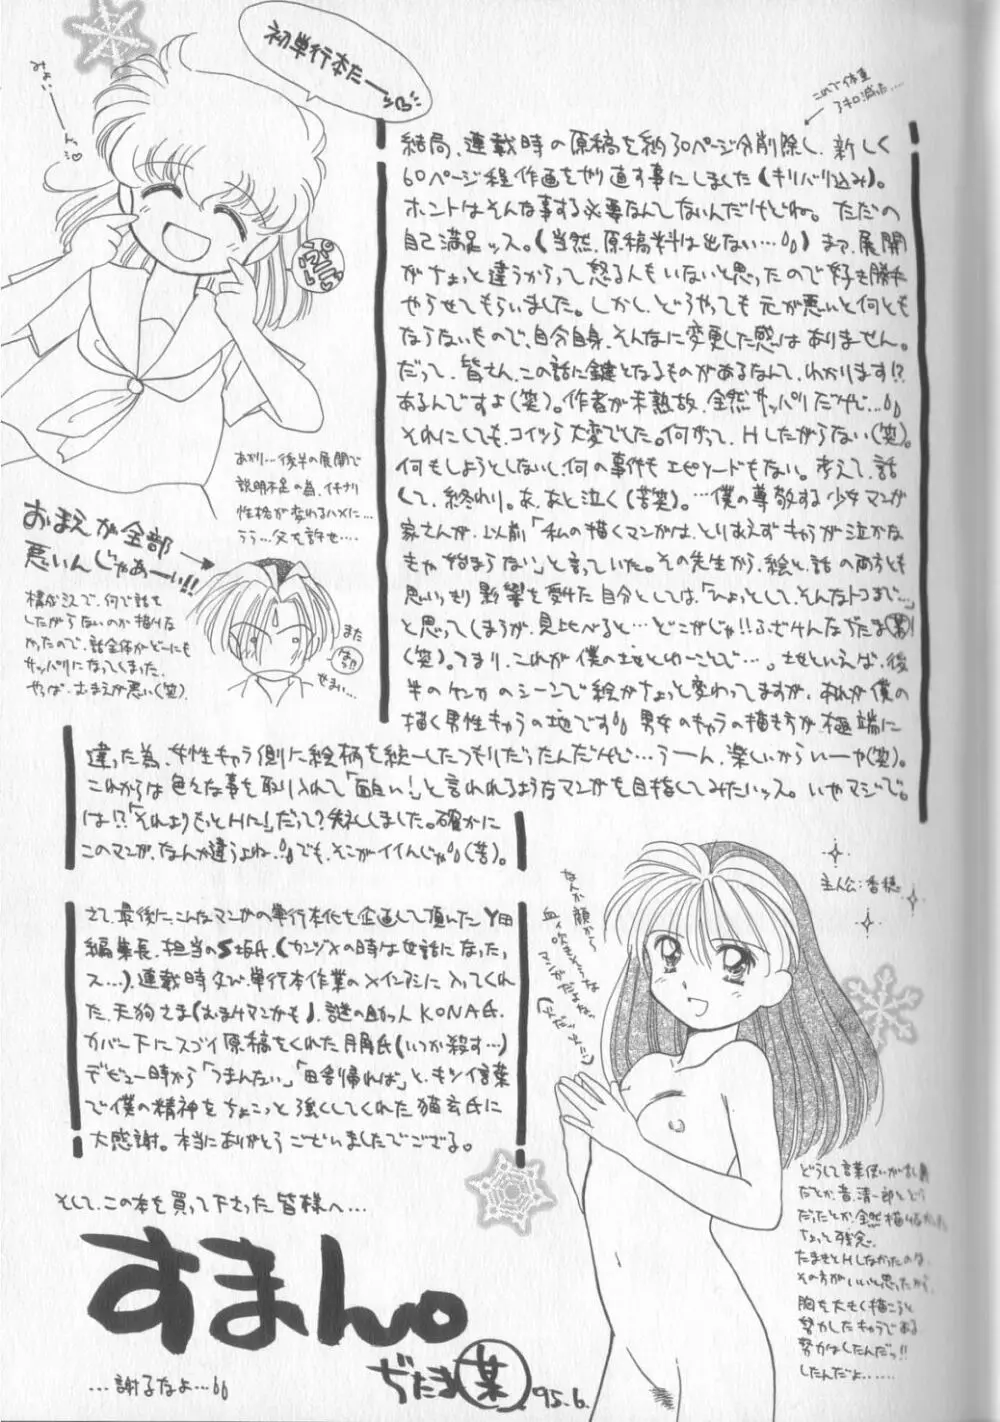 初単行本だー
みょいーーん
これで体重
3キロ減った....
結局、連載時の原稿を約30ページ分削除し、新しく
60ページ程作画をやり直す事にしました(キリバリ込み)。
ホントはそんな事する必要なんてないんだけどね。ただの
自己満足ッス。(当然、原稿料は出ない…。)まァ、展開
がちょっと違うからって怒る人もいないと思ったので好き勝手
やらせてもらいました。しかし、どうやっても元が悪いと何とも
ならないもので、自分自身、そんなに変更した感はありません。
だって、皆さん、この話に鍵となるものがあるなんて、わかります!?
あるんですよ(笑)。作者が未熟故、全然サッパリだけど…。
それにしても、コイツら大変でした。何がって、Hしたがらない(笑)。
何もしようとしないし、何の事件もエピソードもない。考えて、話
して、終わり。あ、あと泣く(苦笑)。…僕の尊敬する少女マンガ
家さんが、以前「私の描くマンガは、とりあえずキャラが泣かな
きゃ始まらない」と言っていた。その先生から、絵と、話の両方とも
思いっきり影響を受けた自分としては、「ひょっとして、そんなトコまで…」
と思ってしまうが、見比べると…どこがじゃ!!ふざけんなぢたま(某)!
(笑)。つまり、これが僕の地とゆーことで…。地といえば、後
半のケンカのシーンで絵がちょっと変わってますが、あれが僕の
描く男性キャラの地です。男女のキャラの描き方が極端に
違った為、女性キャラ側に絵柄を統一したつもりだったんだけど…うーん、楽しいからいーや(笑)。
これからは色々な事を取り入れて「面白い!」と言われるようなマンガを目指してみたいッス。いやマジで。
は!?「それよりもっとHに!」だって?失礼しました。確かに
このマンガ、なんか違うよね。でも、そこがイイんじゃ。(苦)。
おかり…後半の展開で
説明不足の為、イキナリ
性格が変わるハメに…
うう…父を許せ….
おまえが全部
悪いんじゃあーい!!
構成ミスで、何で話を
したがらないのか描けな
かったので、話全体がどーにも
サッパリになってしまった。
やっぱ、おまえが悪い(笑)。
また
せまい…
さて、最後に、こんなマンガの単行本化を企画して頂いたY田
編集長、担当のS坂氏、(カンヅメの時は世話になったッ
ス…)、連載時及び、単行本作業のメインアシに入ってくれ
た、天狗さま(おまけマンガも)、謎の助っ人KONA氏、
カバー下にスゴイ原稿をくれた月角氏(いつか殺す…)
デビュー時から「つまんない」「田舎帰れば」と、キツイ言葉
で僕の精神をちょこっと強くしてくれた猫玄氏に
大感謝。本当にありがとうございましたでござる。
なんか顔から
血ィ吹きそうな
マンガだよね。
主人公:香穂
どうして言葉使いが
だとか、昔、清一郎とどう
だったとか、全然描けなかった
ちょっと残念。
たまきとHしなかったのは、
その方がいいと思ったから。
胸を大きく描こうと
努力したキャラである
努力はしたんだっ!!
したんだよ......
そして、この本を買って下さった皆様へ…
すまん。
ぢたま(某) '95.6.
…謝るなよ…。